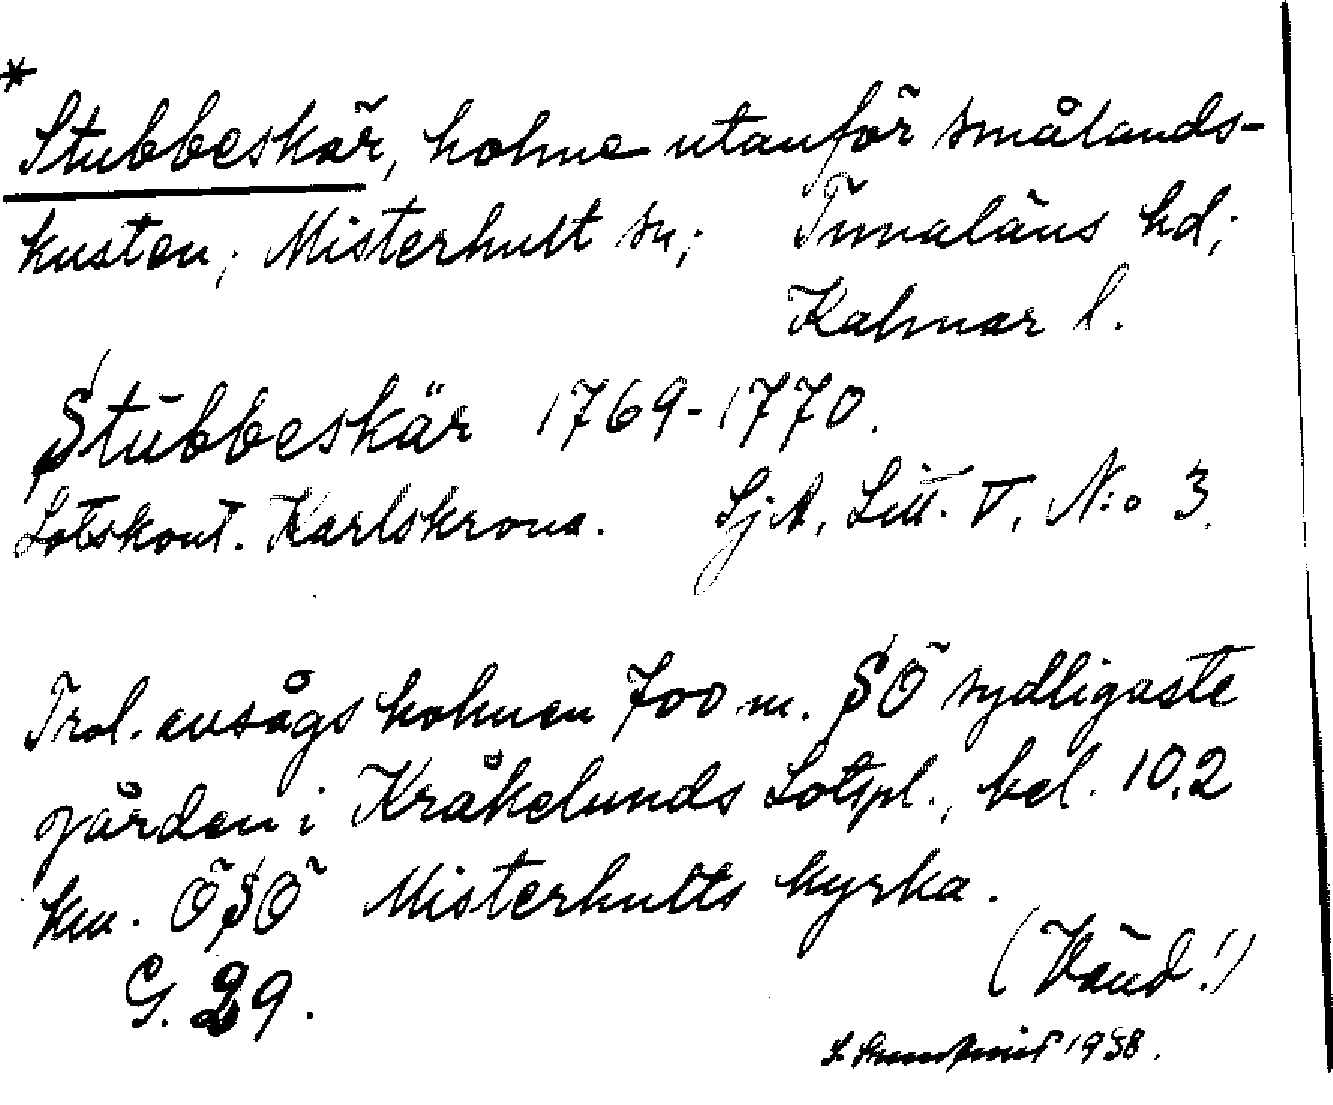 *
Stubbeskär, holme utanför smålands-
kusten; Misterhult sn; Tunaläns hd;
Kalmar l.
Stubbeskär 1769-1770.
Lotskont. Karlskrona. SjA, Litt. V, N:o 3.
Trol. avsågs holmen 700 m. SÖ sydligaste
gården i Kråkelunds Lotspl., bel. 10,2
km. ÖSÖ Misterhults kyrka.
(Vänd!)
G. 29.
1938.